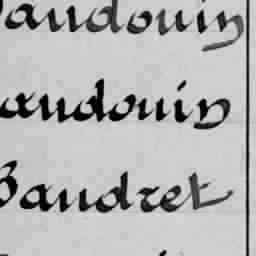 Baudouin
audouin
Baudret